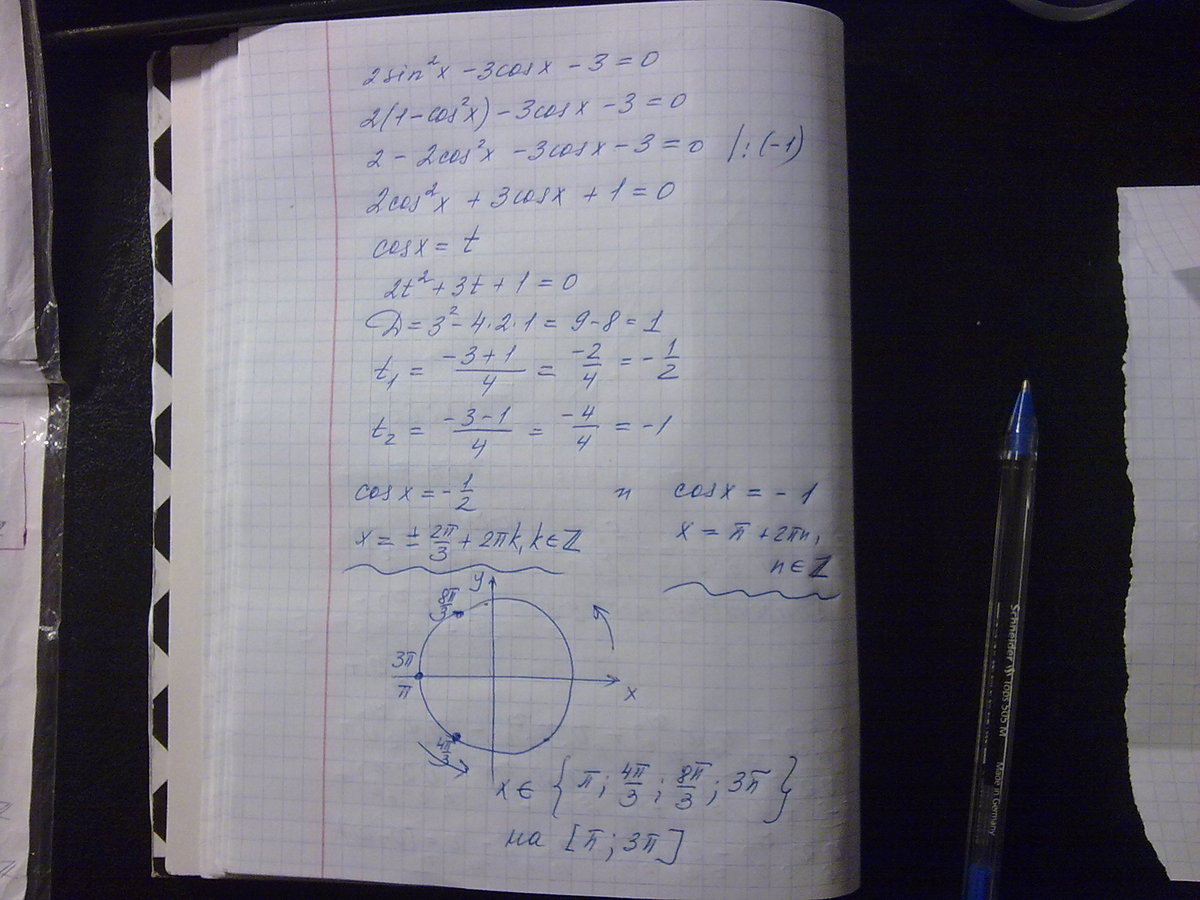 2sin²x - 3cosx - 3 = 0
2(1 - cos²x) - 3cosx - 3 = 0
2 - 2cos²x - 3cosx - 3 = 0 /:(-1)
2cos²x + 3cosx + 1 = 0
cosx = t
2t² + 3t + 1 = 0
D = 3² - 4·2·1 = 9 - 8 = 1
t₁ = (-3+1)/4 = -2/4 = -1/2
t₂ = (-3-1)/4 = -4/4 = -1
cosx = -1/2 и cosx = -1
x = ± 2π/3 + 2πk, k∈ℤ x = π + 2πn,
n∈ℤ
y
8π/3
3π
π
x
4π/3
x ∈ {π; 4π/3; 8π/3; 3π}
на [π; 3π]
Schneider Tops 505 M Made in Germany